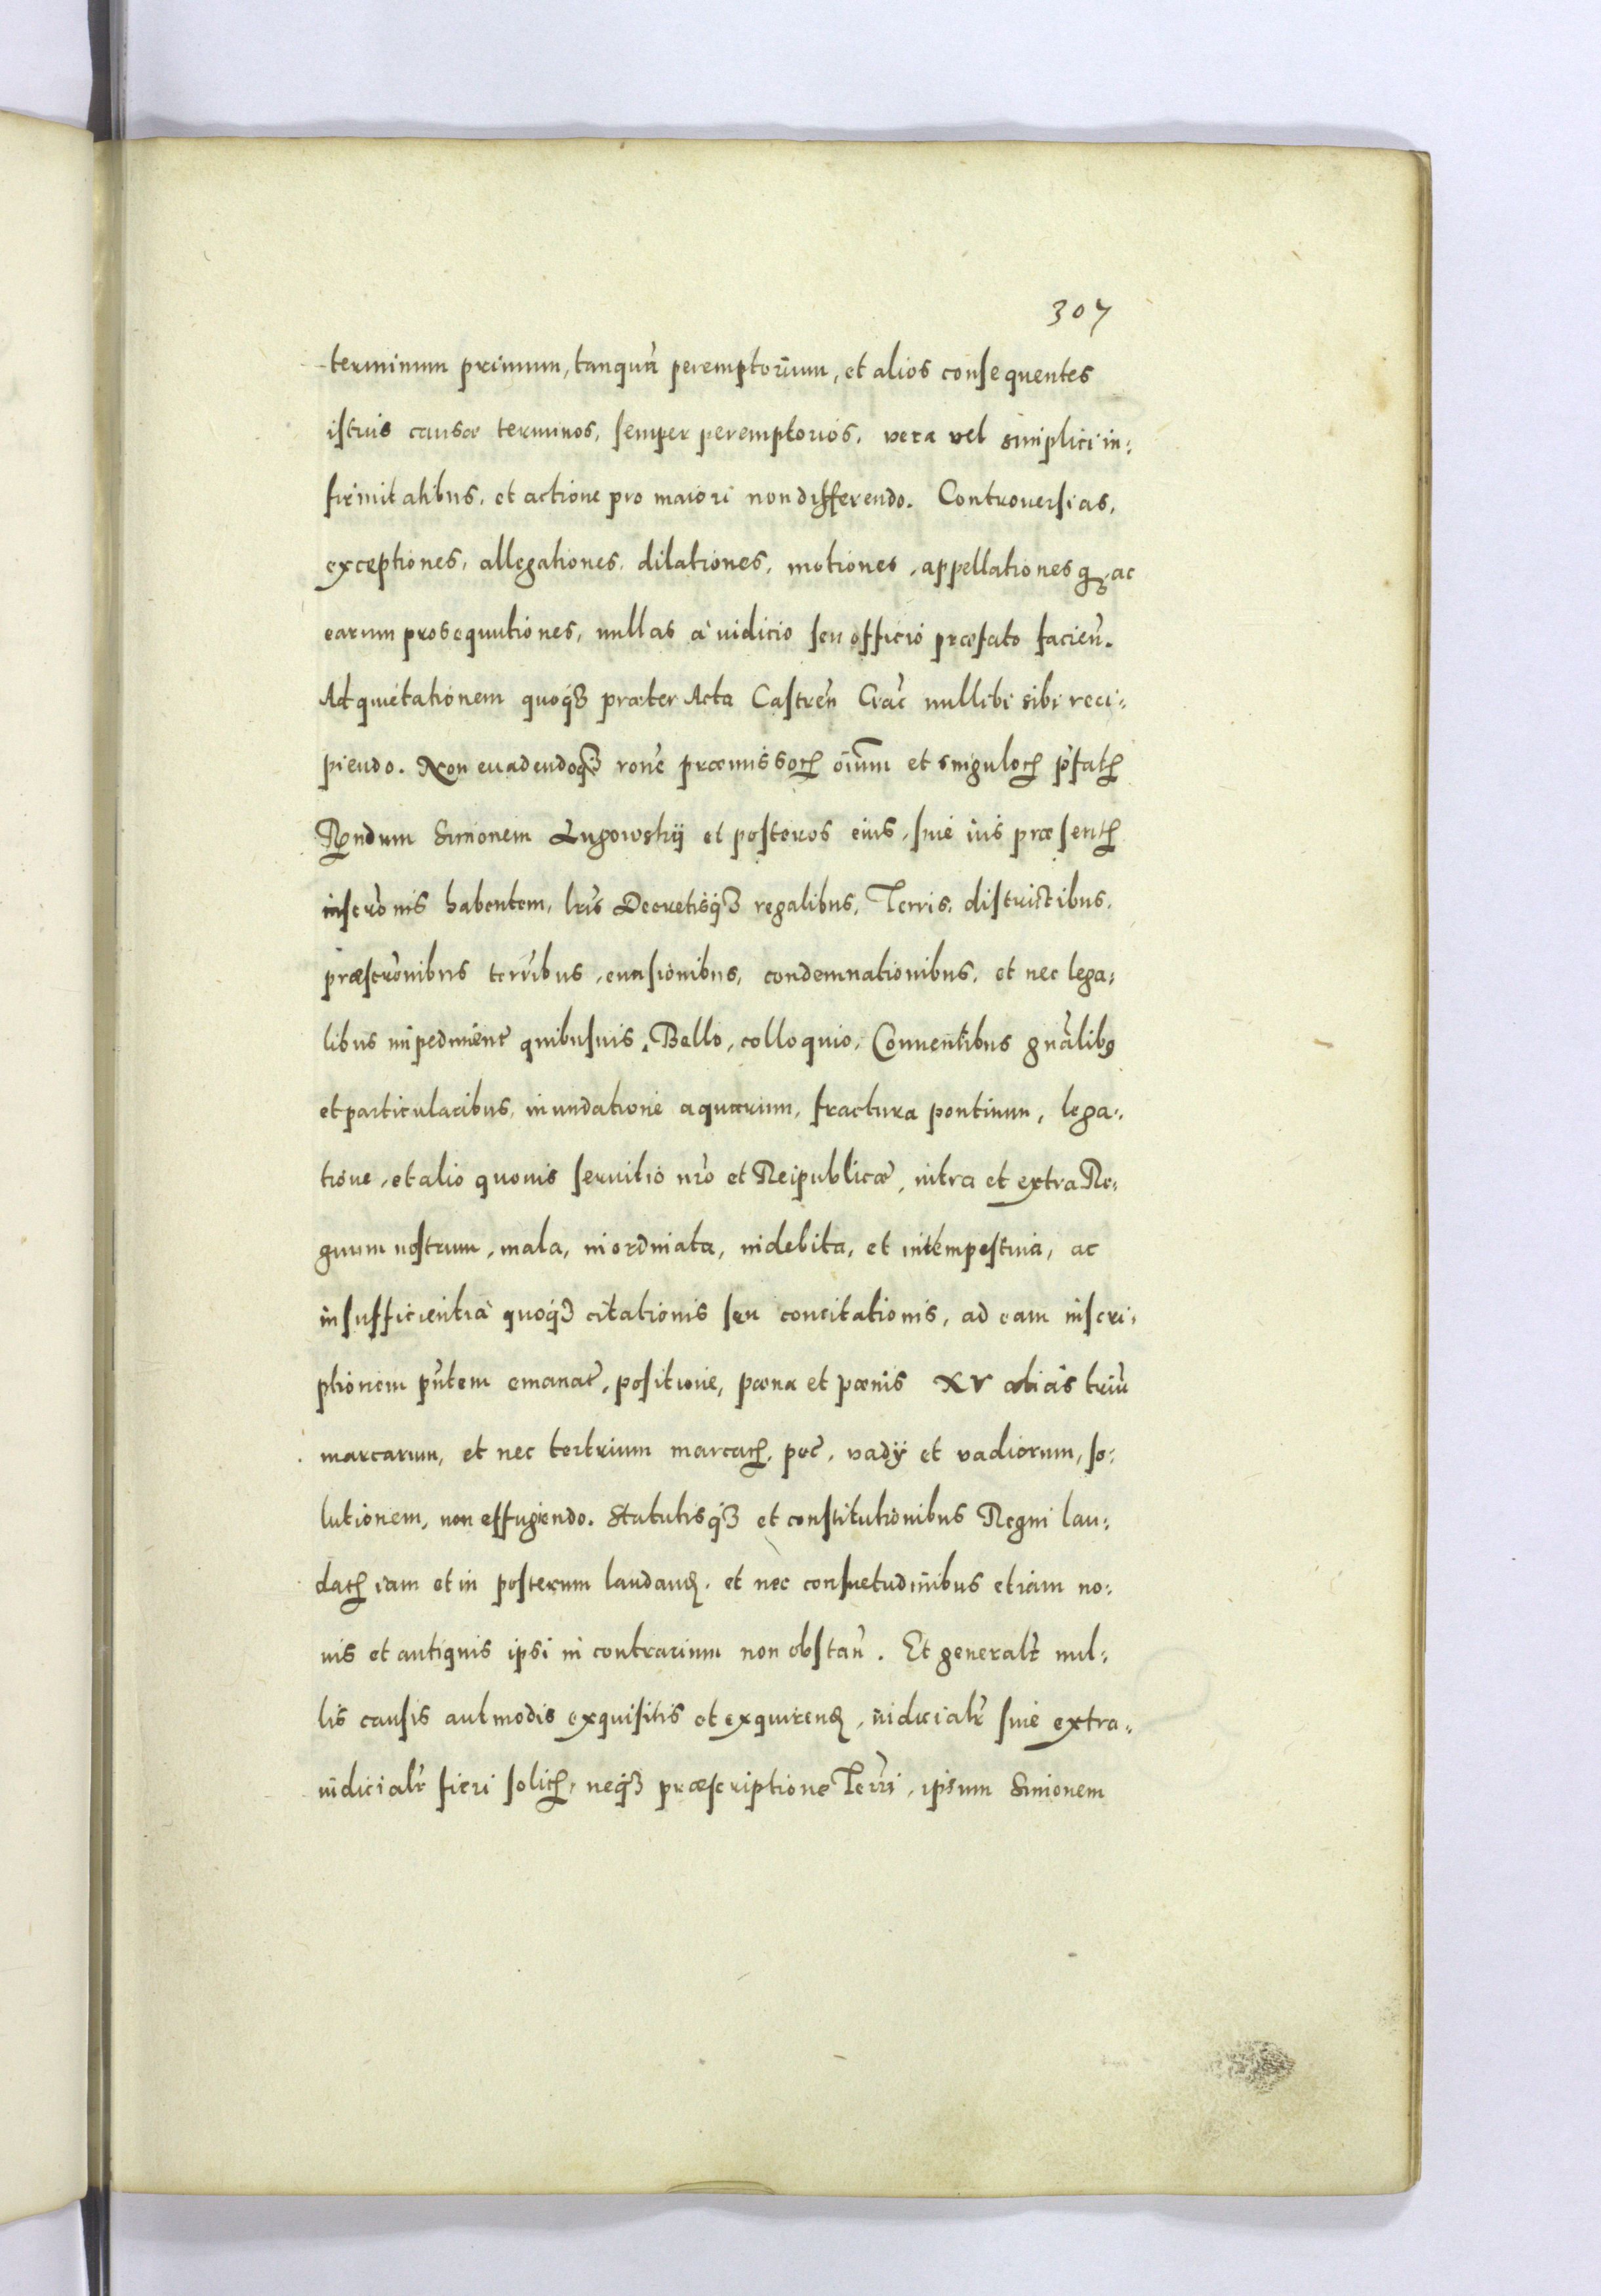 307
terminum primum, tanquā peremptorium, et alios consequentes
istius causæ terminos, semper peremptorios, vera vel simplici in-
firmitatibus, et actione pro maiori non differendo. Controuersias,
exceptiones, allegationes, dilationes, motiones, appellationesqꝫ, ac
earum prosequutiones, nullas à iudicio seu officio præfato facieñ.
Ad quietationem quoqꝫ præter Acta Castreñ Crac̃ nullibi sibi reci-
piendo. Non euadendoqꝫ ron̄e præmissoꝝ oīum et singuloꝝ p̃fatꝝ
Rndum Simonem Ługowskÿ et posteros eius, siue ius præsentꝝ
inscr̃onis habentem, lr̃is Decretisqꝫ regalibus, Terris, districtibus,
præscr̃onibus terr̃ibus, euasionibus, condemnationibus, et nec lega-
libus impedimenť quibusuis, Bello, colloquio, Conuentibus gñalibꝯ
et particularibus, inundatione aquarum, fractura pontium, lega-
tione, et alio quouis seruitio nr̃o et Reipublicæ, intra et extra Re-
gnum nostrum, mala, inordinata, indebita, et intempestiua, ac
insufficientia quoqꝫ citationis seu concitationis, ad eam inscri-
ptionem pñtem emanať, positione, pæna et pænis XV alias triū
marcarum, et nec tertrium marcaꝝ, pec̃, vadÿ et vadiorum, so-
lutionem, non effugiendo. Statutisqꝫ et constitutionibus Regni lau-
datꝝ iam et in posterum laudanꝝ, et nec consuetudinibus etiam no-
uis et antiquis ipsi in contrarium non obstañ. Et generalr̃ nul-
lis causis aut modis exquisitis et exquirenꝝ, iudicialr̃ siue extra-
iudicialr̃ fieri solitꝝ, neqꝫ præscriptione Terr̃i, ipsum Simonem